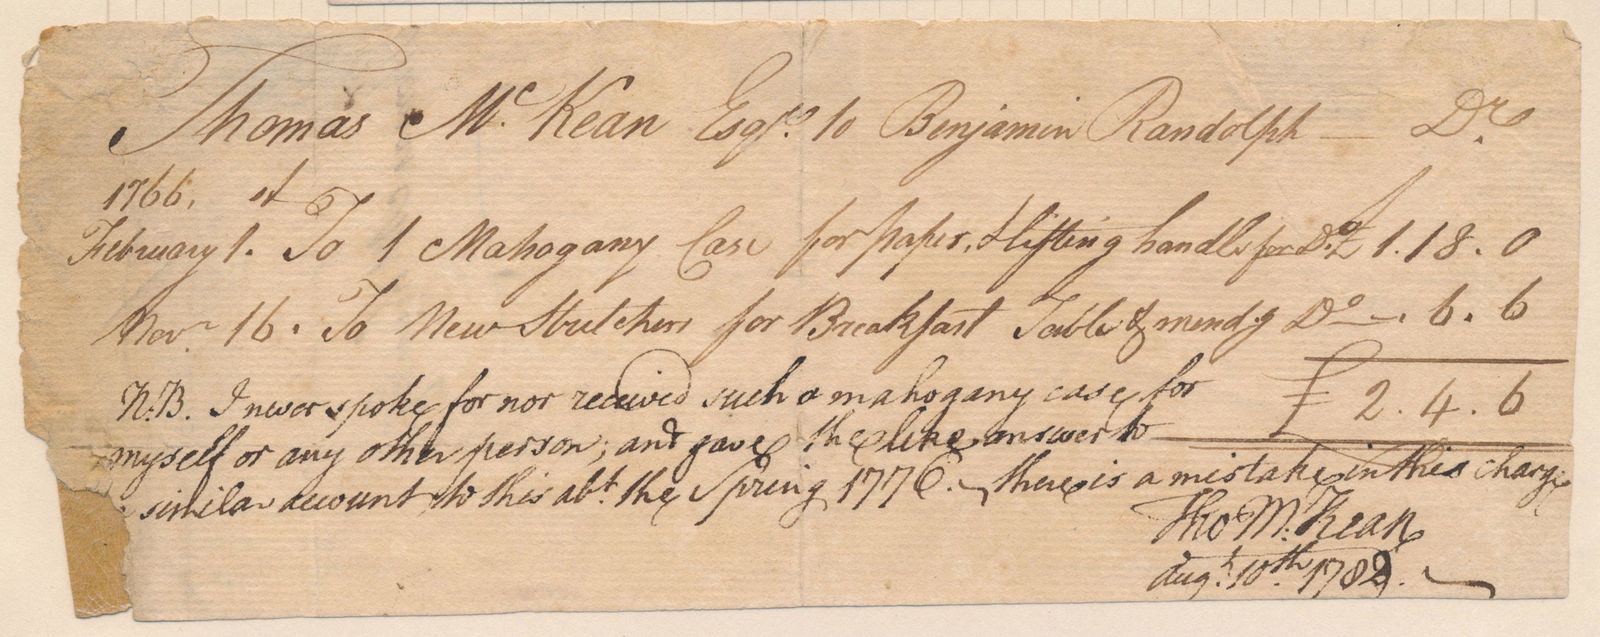 Thomas McKean Esqr. to Benjamin Randolph — Dr.
1766.
February 1. To 1 Mahogany Case for paper, & lifting handls for Do. £ 1.18.0
Novr. 16. To New Stretchers for Breakfast Table & mendg Do — . 6. 6
£ 2. 4. 6
N.B. I never spoke for nor received such a mahogany case for
myself or any other person; and gave the like answer to
a similar account to this abt. the Spring 1776. — there is a mistake in this charge
Tho. McKean
Augt. 10th 1782.